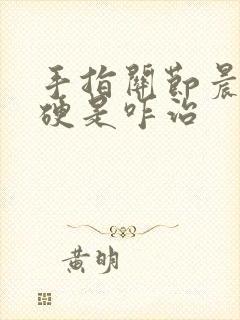 手指關節晨
硬是咋治
黃明